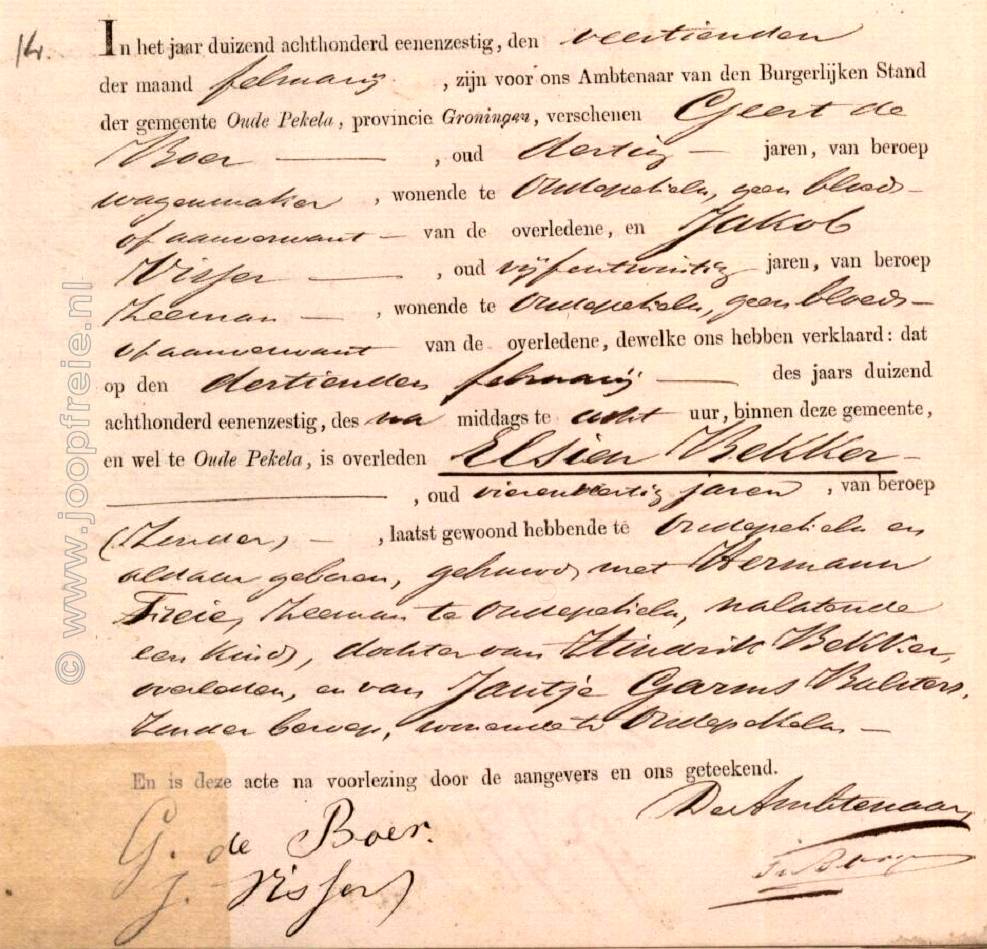 14.
In het jaar duizend achthonderd eenenzestig, den veertienden
der maand februarij , zijn voor ons Ambtenaar van den Burgerlijken Stand
der gemeente Oude Pekela, provincie Groningen, verschenen Geert de
Boer — , oud dertig — jaren, van beroep
wagenmaker , wonende te Oudepekela, geen bloed-
of aanverwant — van de overledene, en Jakob
Visser — , oud vijfentwintig jaren, van beroep
Zeeman — , wonende te Oudepekela, geen bloed-
of aanverwant van de overledene, dewelke ons hebben verklaard: dat
op den dertienden februarij — des jaars duizend
achthonderd eenenzestig, des na middags te acht uur, binnen deze gemeente,
en wel te Oude Pekela, is overleden Elsien Bekker —
— , oud jaren , van beroep
(Zonder) — , laatst gewoond hebbende te Oudepekela en
aldaar geboren, gehuwd met Hermann
Freie, Zeeman te Oudepekela, nalatende
een kind, dochter van Hindrik Bekker,
overleden, en van Jantje Garms Bulters,
zonder beroep, wonende te Oudepekela —
En is deze acte na voorlezing door de aangevers en ons geteekend.
De Ambtenaar,
G. de Boer.
J. Visser
© www.joopfreie.nl